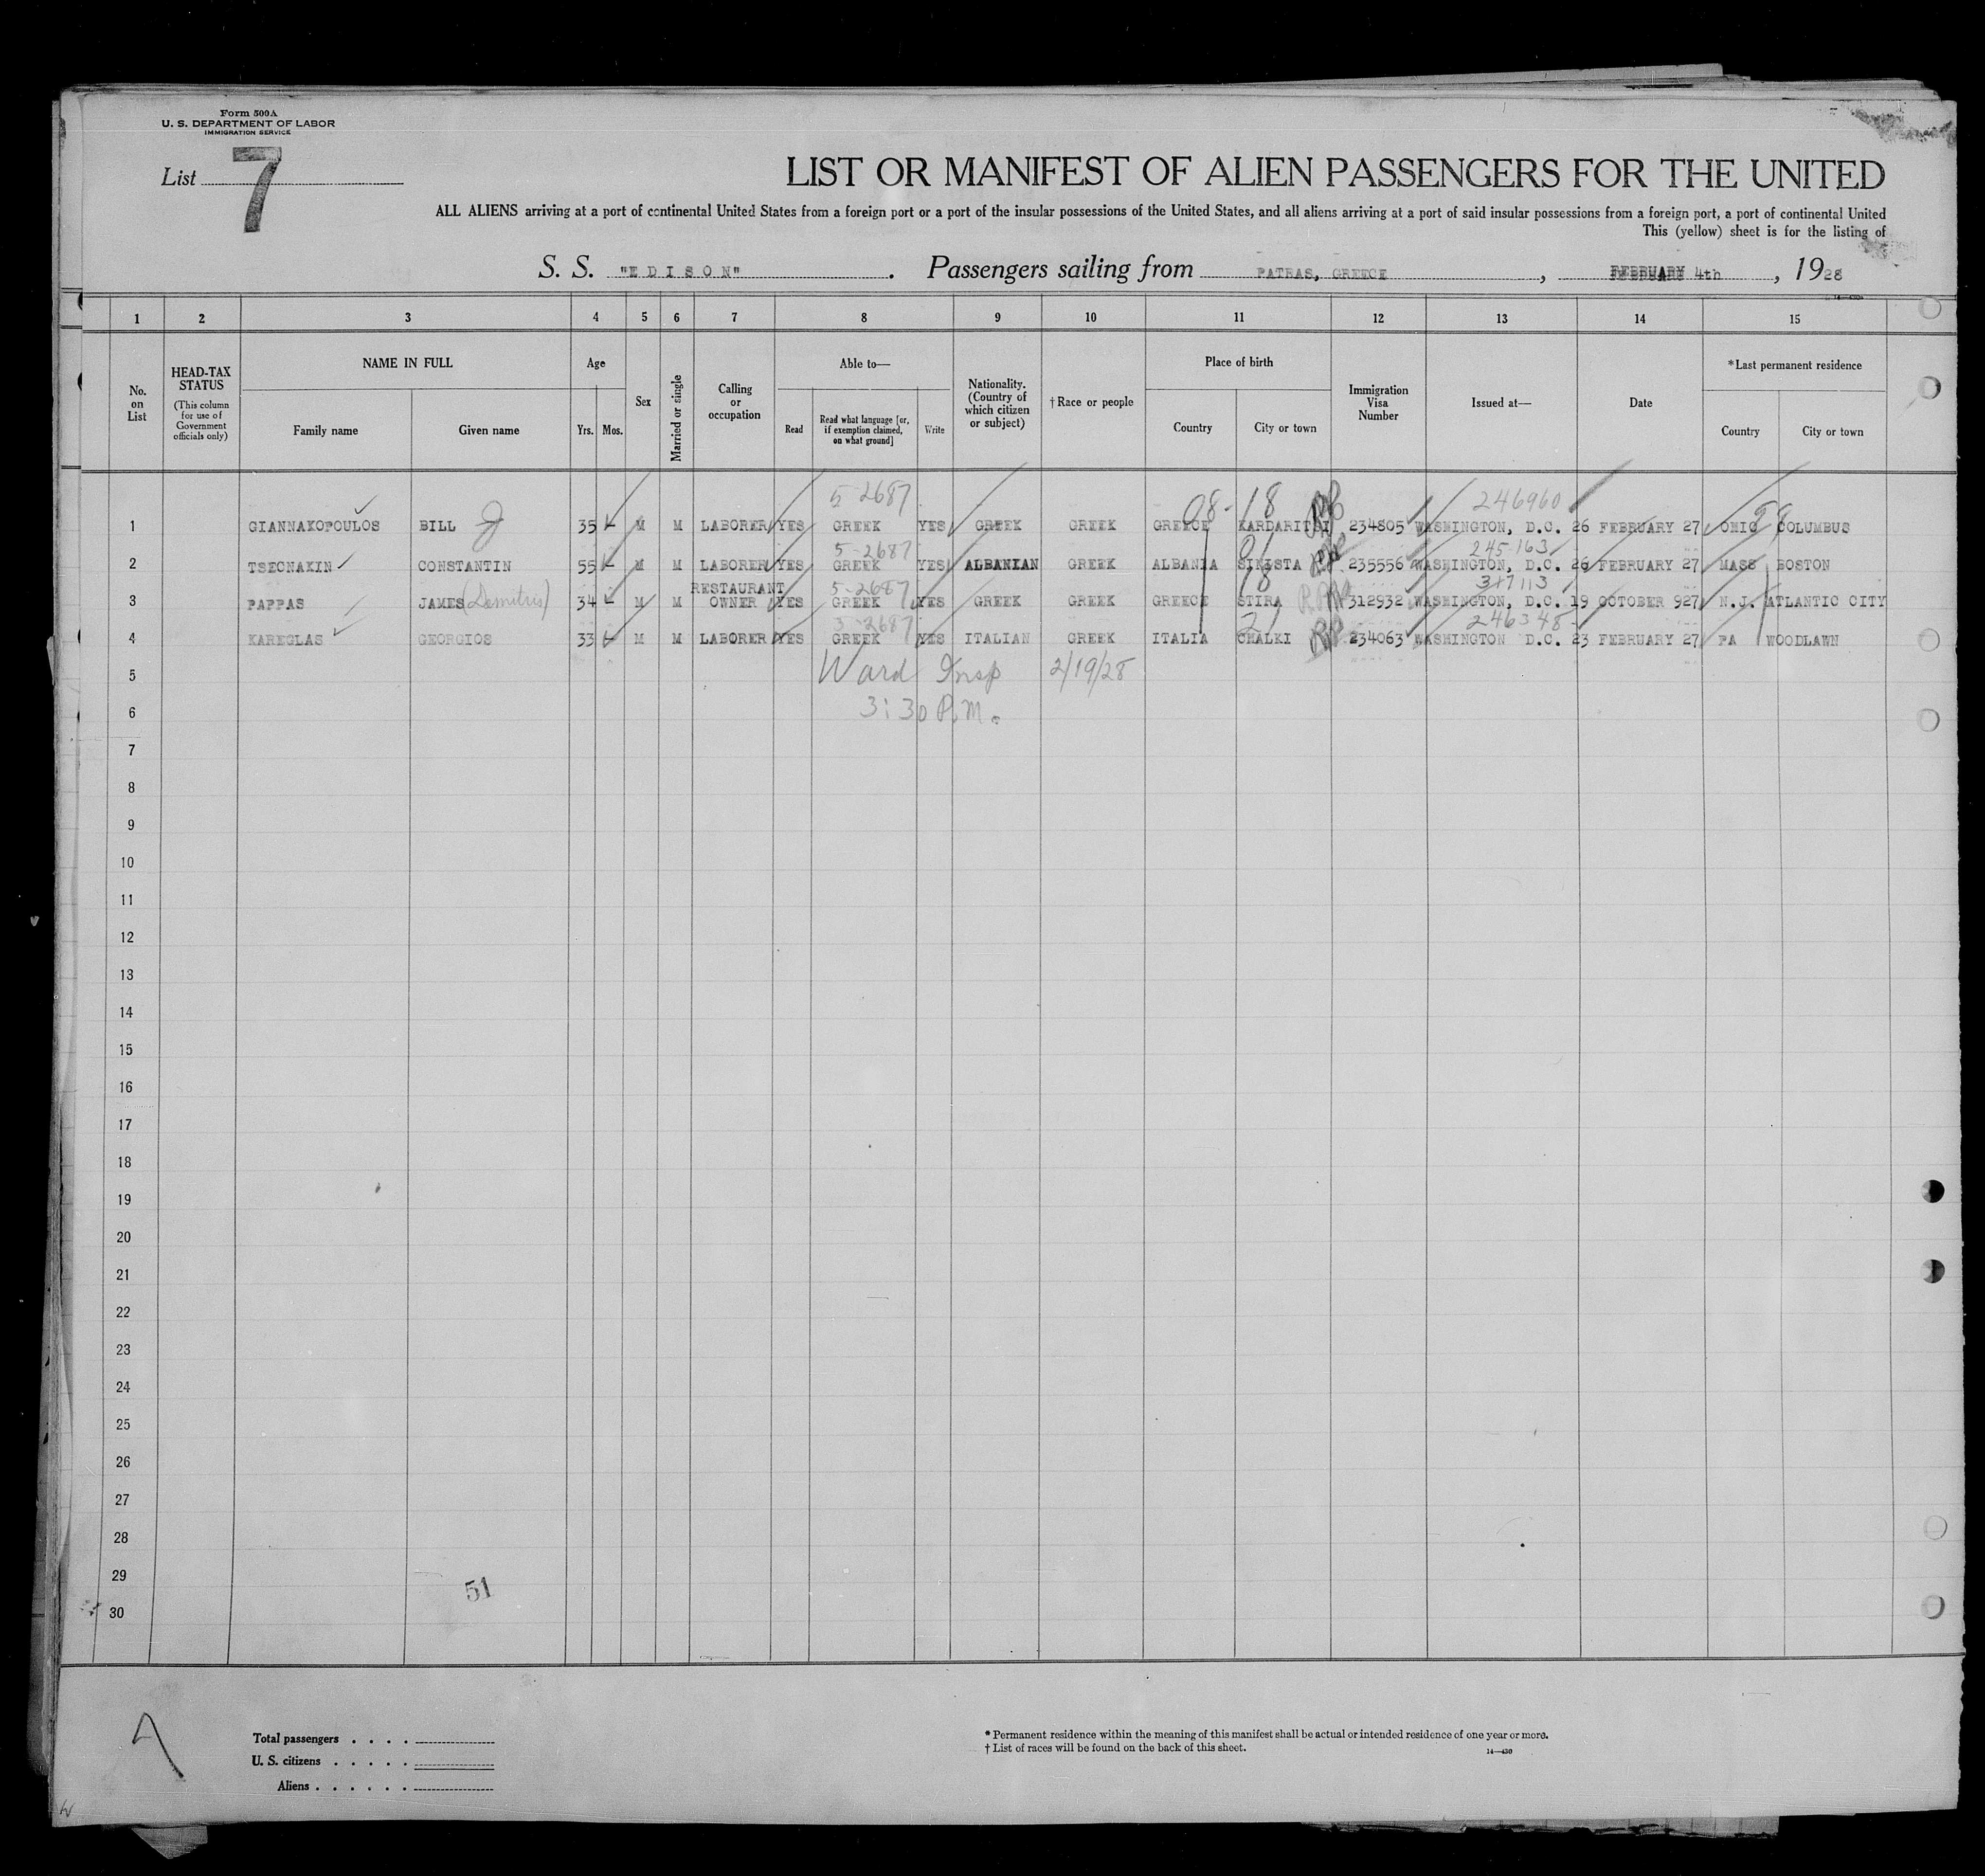 Form 500A
U. S. DEPARTMENT OF LABOR
IMMIGRATION SERVICE
List 7
LIST OR MANIFEST OF ALIEN PASSENGERS FOR THE UNITED
ALL ALIENS arriving at a port of continental United States from a foreign port or a port of the insular possessions of the United States, and all aliens arriving at a port of said insular possessions from a foreign port, a port of continental United
This (yellow) sheet is for the listing of
S. S. "EDISON". Passengers sailing from PATRAS, GREECE, FEBRUARY 4th, 1928
1 2 3 4 5 6 7 8 9 10 11 12 13 14 15
No. on List
HEAD-TAX STATUS (This column for use of Government officials only)
NAME IN FULL
Family name
Given name
Age
Yrs.
Mos.
Sex
Married or single
Calling or occupation
Able to—
Read
Read what language [or, if exemption claimed, on what ground]
Write
Nationality. (Country of which citizen or subject)
† Race or people
Place of birth
Country
City or town
Immigration Visa Number
Issued at—
Date
*Last permanent residence
Country
City or town
5-2687 08- 18 246960
1 GIANNAKOPOULOS BILL J 35 - M M LABORER YES GREEK YES GREEK GREEK GREECE KARDARITSI 234805 WASHINGTON, D.C. 26 FEBRUARY 27 OHIO COLUMBUS
5-2687 01 245163
2 TSECNAKIN CONSTANTIN 55 - M M LABORER YES GREEK YES ALBANIAN GREEK ALBANIA 235556 WASHINGTON, D.C. 26 FEBRUARY 27 MASS BOSTON
5-2687 18 317113
3 PAPPAS JAMES (Demitris) 34 - M M RESTAURANT OWNER YES GREEK YES GREEK GREEK GREECE STIRA 312932 WASHINGTON, D.C. 19 OCTOBER 927 N.J. ATLANTIC CITY
2687 21 246348
4 KAREGLAS GEORGIOS 33 - M M LABORER YES GREEK YES ITALIAN GREEK ITALIA CHALKI 234063 WASHINGTON D.C. 23 FEBRUARY 27 PA WOODLAWN
5 Ward Insp 2/19/28
6 3:30 P.M.
7
8
9
10
11
12
13
14
15
16
17
18
19
20
21
22
23
24
25
26
27
28
29
51
30
Total passengers
U. S. citizens
Aliens
* Permanent residence within the meaning of this manifest shall be actual or intended residence of one year or more.
† List of races will be found on the back of this sheet.
14—430